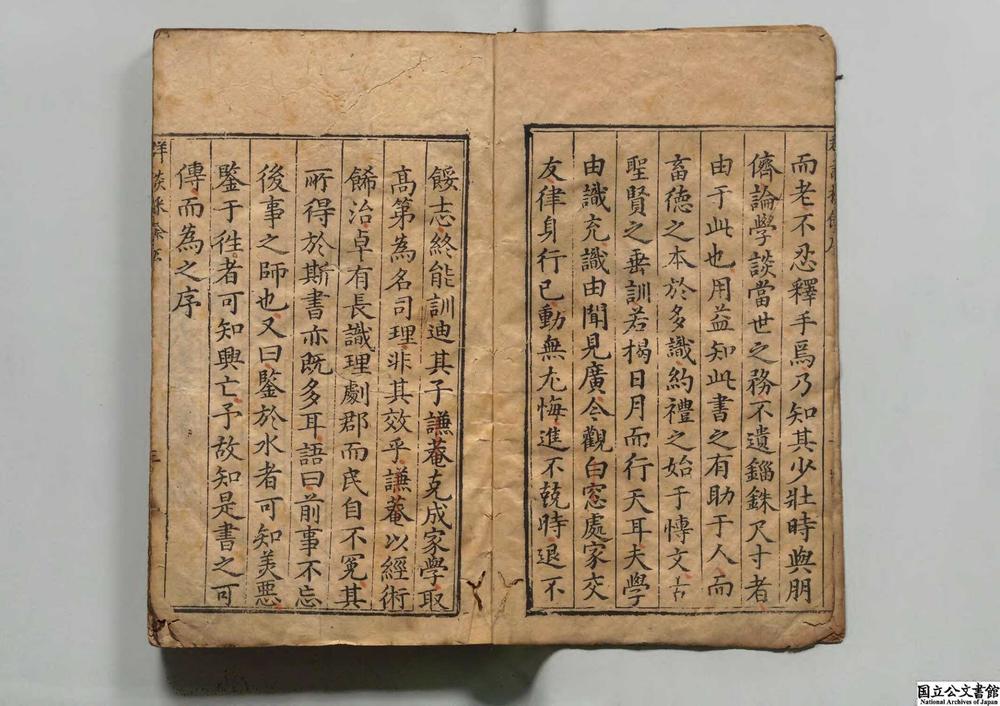 而老不忍釋手焉乃知其少壯時與朋
儕論學談當世之務不遺錙銖尺寸者
由于此也用益知此書之有助于人而
畜徳之本於多識約禮之始于愽文古
聖賢之垂訓若揭日月而行天耳夫學
由識充識由聞見廣今觀白窓處家交
友律身行已動無尤悔進不競時退不
餒志終能訓迪其子謙菴克成家學取
髙第為名司理非其效乎謙菴以經術
餙治卓有長識理劇郡而民自不冤其
所得於斯書亦既多耳語曰前事不忘
後事之師也又曰鑒於水者可知美惡
鑒于徃者可知興亡予故知是書之可
傳而為之序
三
国立公文書館
National Archives of Japan